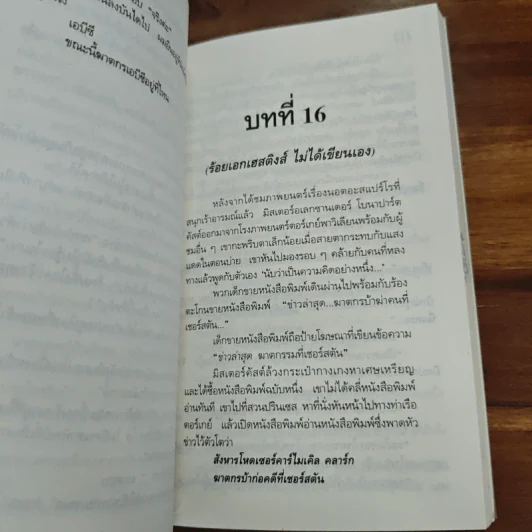 เอบีซี
ขณะนี้ฆาตกรเอบีซีอยู่ที่ไหน
บทที่ 16
(ร้อยเอกเฮสติงส์ ไม่ได้เขียนเอง)
หลังจากได้ชมภาพยนตร์เรื่องนอตอะสแปร์โรที่
สนุกเร้าอารมณ์แล้ว มิสเตอร์อเลกซานเดอร์ โบนาปาร์ต
คัสต์ออกมาจากโรงภาพยนตร์ตอร์เกย์พาวิเลียนพร้อมกับผู้
ชมอื่น ๆ เขากะพริบตาเล็กน้อยเมื่อสายตากระทบกับแสง
แดดในตอนบ่าย เขาหันไปมองรอบ ๆ คล้ายกับคนที่หลง
ทางแล้วพูดกับตัวเอง 'นับว่าเป็นความคิดอย่างหนึ่ง...'
พวกเด็กขายหนังสือพิมพ์เดินผ่านไปพร้อมกับร้อง
ตะโกนขายหนังสือพิมพ์ "ข่าวล่าสุด...ฆาตกรบ้าฆ่าคนที่
เชอร์สตัน..."
เด็กขายหนังสือพิมพ์ถือป้ายโฆษณาที่เขียนข้อความ
"ข่าวล่าสุด ฆาตกรรมที่เชอร์สตัน"
มิสเตอร์คัสต์ล้วงกระเป๋ากางเกงหาเศษเหรียญ
และได้ซื้อหนังสือพิมพ์ฉบับหนึ่ง เขาไม่ได้คลี่หนังสือพิมพ์
อ่านทันที เขาไปที่สวนปรินเซส หาที่นั่งหันหน้าไปทางท่าเรือ
ตอร์เกย์ แล้วเปิดหนังสือพิมพ์อ่านหนังสือพิมพ์ซึ่งพาดหัว
ข่าวไว้ตัวโตว่า
สังหารโหดเซอร์คาร์ไมเคิล คลาร์ก
ฆาตกรบ้าก่อคดีที่เชอร์สตัน